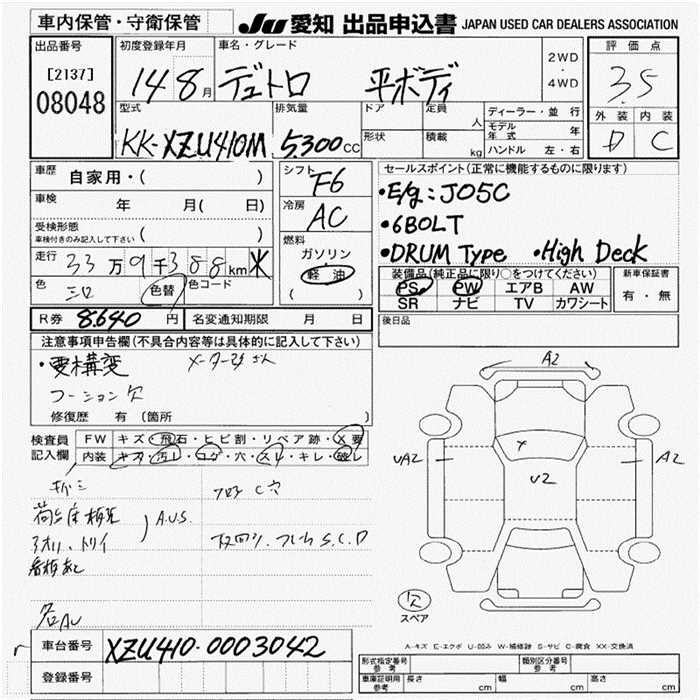 車内保管・守衛保管
JU 愛知 出品申込書 JAPAN USED CAR DEALERS ASSOCIATION
出品番号
[2137]
08048
初度登録年月
14 8月
車名・グレード
デュトロ 平ボディ
2WD
・
4WD
評価点
3.5
外装 内装
D C
型式
KK-XZU410M
排気量
5,300cc
ドア
形状
定員 人
積載 kg
ディーラー・並行
モデル年式 年
ハンドル 左・右
車歴
自家用・( )
車検 年 月( 日)
受検形態
車検付きのみ記入して下さい ( )
走行 33万9千388km
色 シロ 色替 色コード
シフト
F6
冷房
AC
燃料
ガソリン
軽油
( )
セールスポイント(正常に機能するものに限ります)
・E/g:J05C
・6BOLT
・DRUM Type ・High Deck
装備品(純正品に限り○をつけてください)
PS PW エアB AW
SR ナビ TV カワシート
新車保証書
有・無
R券 8,640円 名変通知期限 月 日
後日品
注意事項申告欄(不具合内容等は具体的に記入して下さい)
・要構変
コーション欠
修復歴 有(箇所 )
検査員記入欄
FW キズ・飛石・ヒビ割・リペア跡・X要
内装 キズ・汚レ・コゲ・穴・スレ・キレ・破レ
キズミ
フロア C穴
A.U.S.
アオリ、トリイ
フレーム S.C.D
看板あと
A2
UA2
U2
A2
欠
スペア
A-キズ E-エクボ U-凹み W-補修跡 S-サビ C-腐食 XX-交換済
車台番号 XZU410-0003042
登録番号
型式指定番号 参考
類別区分番号 参考
車庫証明用 参考
長さ cm
幅 cm
高さ cm